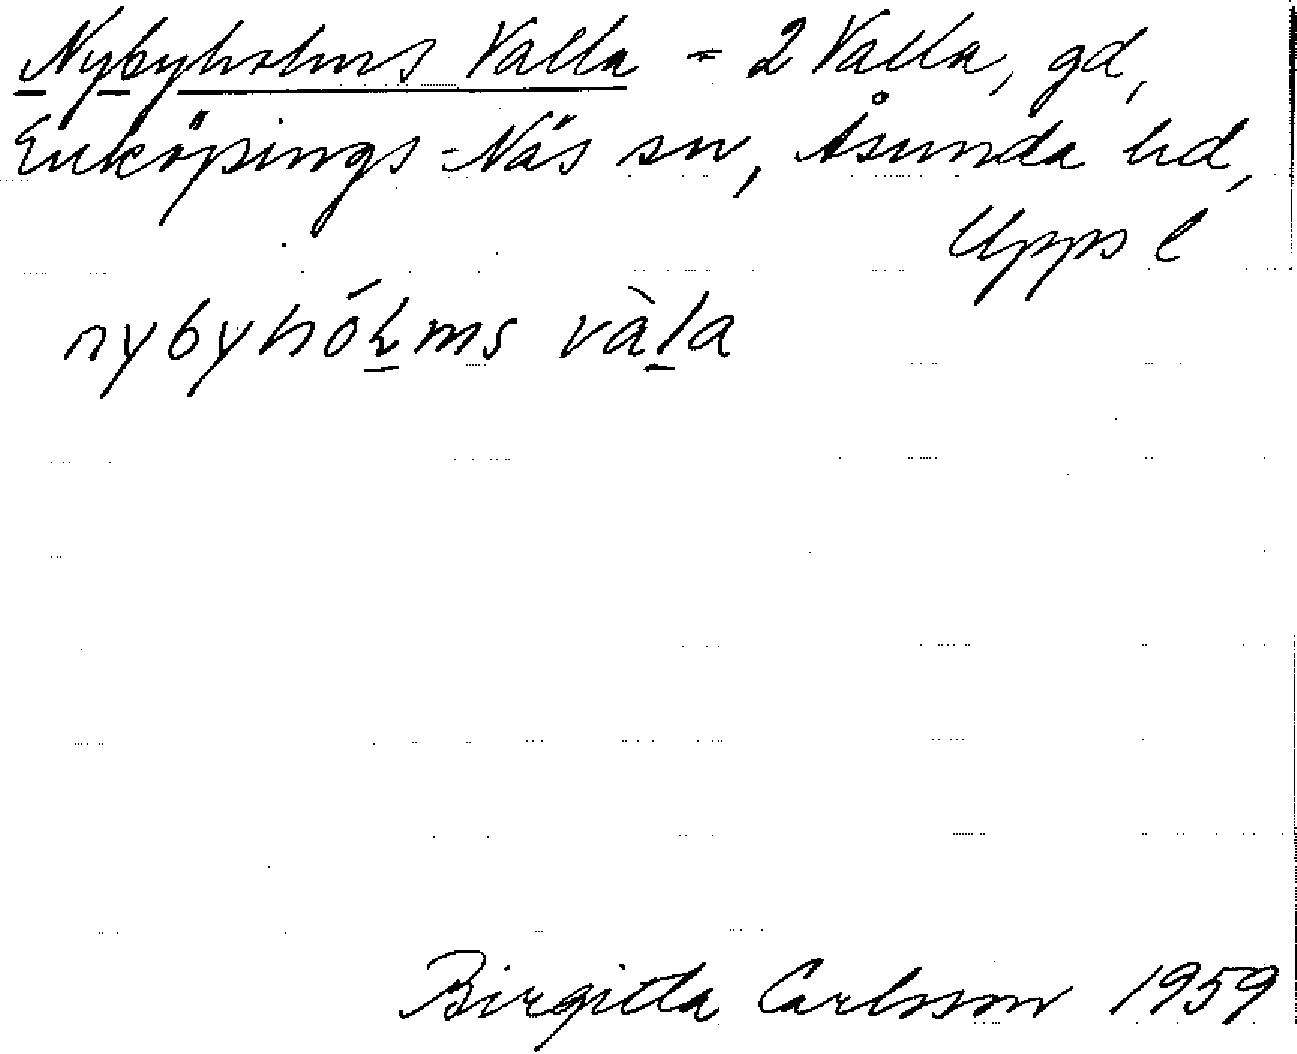 Nybyholms Valla = 2 Valla, gd,
Enköpings-Näs sn, Åsunda hd,
Upps l
nybyhól̲ms vàl̲a
Birgitta Carlsson 1959